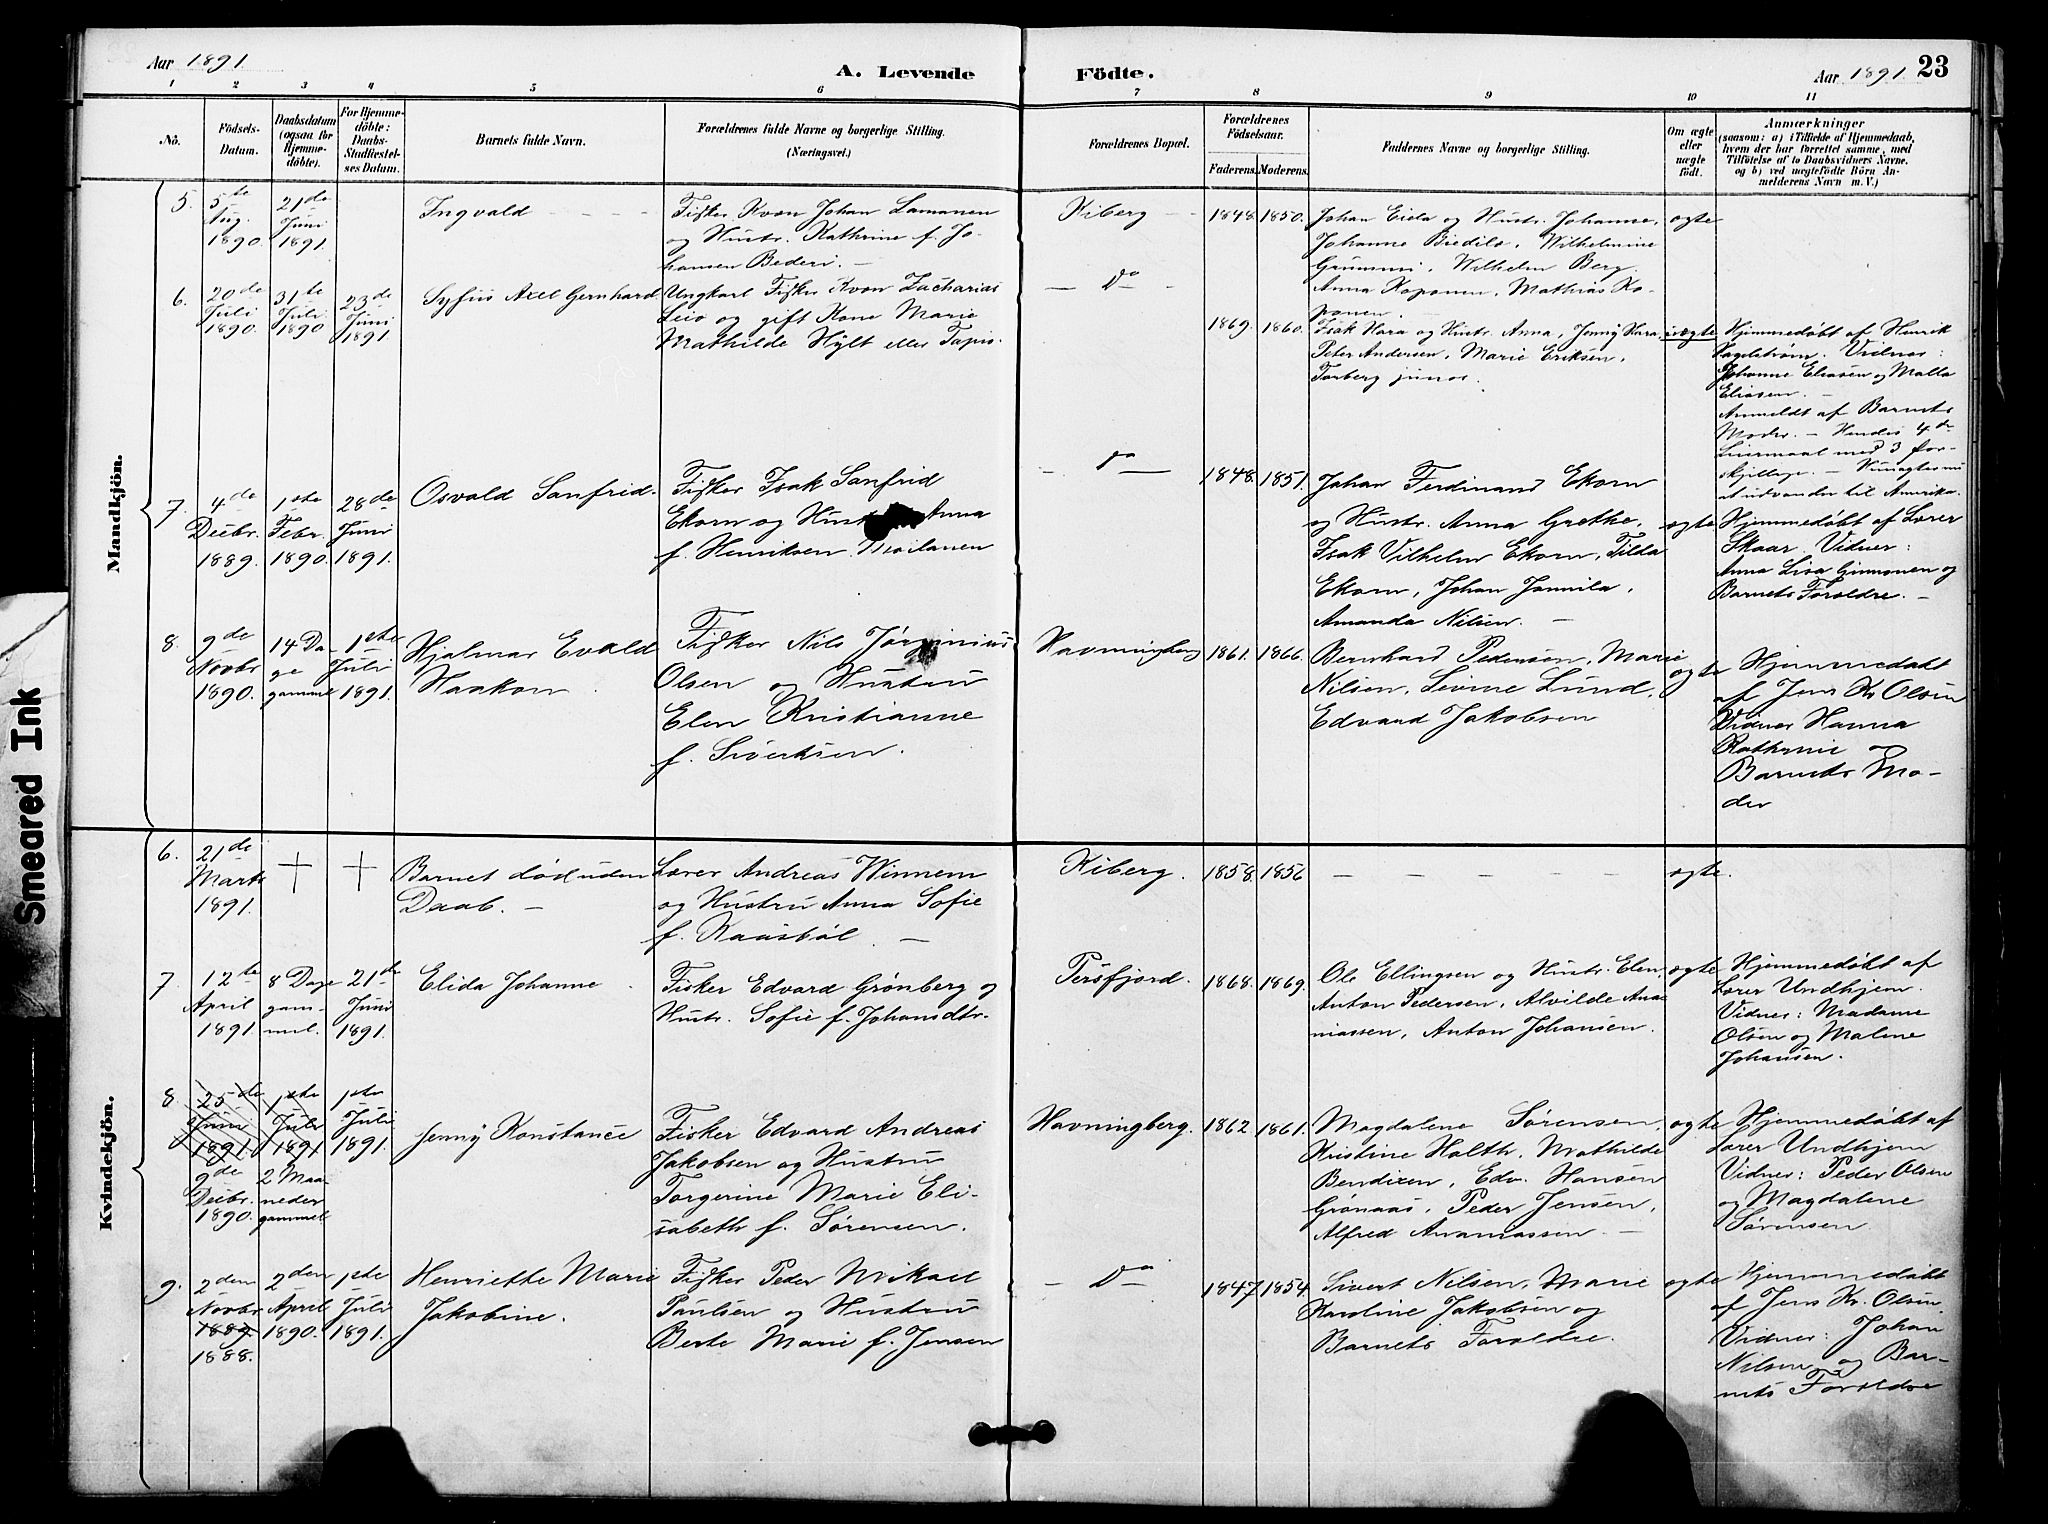 Aar 1891
A. Levende
Födte.
Aar 1891
23
1
2
3
4
5
6
7
8
9
10
11
No.
Födsels-
Datum.
Daabsdatum
(ogsaa for
Hjemme-
döbte).
For Hjemme-
döbte:
Daabs-
Stadfæstel-
ses Datum.
Barnets fulde Navn.
Forældrenes fulde Navne og borgerlige Stilling.
(Næringsvei.)
Forældrenes Bopæl.
Forældrenes
Födselsaar.
Faderens.
Moderens.
Faddernes Navne og borgerlige Stilling.
Om ægte
eller
uægte
födt.
Anmærkninger
(saasom: a) i Tilfælde af Hjemmedaab,
hvem der har forrettet samme, med
Tilföielse af to Daabsvidners Navne,
og b) ved uægtefödte Börn An-
melderens Navn m. V.)
Mandkjön.
5.
5te
Aug.
1890.
21de
Juni
1891.
Ingvald
Fisker Kvæn Johan Lamanen
og Hustr. Kathrine f. Jo-
hansen Bederi. —
Kiberg
1848.
1850.
Johan Eida og Hustr. Johanne,
Johanne Biedilo, Wilhelmine
Grummi, Wilhelm Berg.
Anna Koponen, Mathias Ko-
ponen.
ægte
6.
20de
Juli
1890.
31te
Juli
1890
23de
Juni
1891.
Syfus Axel Gernhard
Ungkarl Fisker Kvæn Zacharias
Leio og gift Kone Marie
Mathilde Hylt eller Tapio.
— Do —
1869.
1860.
Isak Hara og Hustr. Anna, Jenny Hara,
Peter Andersen, Marie Eriksen,
Torberg junior.
uægte
Hjemmedøbt af Henrik
Vidner:
Johanne Eliasen og Malla
Eliasen. —
Anmeldt af Barnets
Moder. — Hendes 4de
Leiermaal med 3 for-
skjellige. —
at udvandre til Amerika.
7.
4de
Decbr.
1889.
1ste
Febr.
1890.
28de
Juni
1891.
Osvald Sanfrid.
Fisker Isak Sanfrid
Ekorn og Hustr Anna
f. Henriksen
— Do —
1848.
1851.
Johan Ferdinand Ekorn
og Hustr. Anna Grethe,
Isak Vilhelm Ekorn, Tilda
Ekorn, Johan Jamila,
Amanda Nilsen. —
ægte
Hjemmedøbt af Lærer
Skaar. Vidner:
Anna Lisa Ginnonen og
Barnets Forældre. —
8.
9de
Novbr
1890.
14 Da-
ge
gammel
1ste
Juli
1891.
Hjalmar Evald
Haakon.
Fisker Nils Jørginius
Olsen og Hustru
Elen Kristianne
f. Sivertsen.
Havningberg
1861.
1866.
Bernhard Pedersen, Marie
Nilsen, Sevine Lund,
Edvard Jakobsen
ægte
Hjemmedøbt
af Jens Kr. Olsen
Vidner Hanna
Kathrine og
Barnets Mo-
der
Kvindekjön.
6.
21de
Marts
1891.
+
+
Barnet død uden
Daab. —
Lærer Andreas Winnem
og Hustru Anna Sofie
f. Kaasbøl. —
Kiberg.
1858.
1856
— — — — —
ægte.
7.
12te
April
1891.
8 Dage
gam-
mel.
21de
Juni
1891.
Elida Johanne
Fisker Edvard Grønberg og
Hustr. Sofie f. Johansdtr.
Persfjord.
1868.
1869.
Ole Ellingsen og Hustr. Elen,
Anton Pedersen, Alvilde Ana-
niassen, Anton Johansen.
ægte
Hjemmedøbt af
Lærer Undhjem.
Vidner: Madame
Olsen og Malene
Johansen.
8.
25de
Juni
1891.
9de
Decbr.
1890.
1ste
Juli
1891
2 Maa-
neder
gammel
1ste
Juli
1891.
Jenny Konstance
Fisker Edvard Andreas
Jakobsen og Hustru
Torgerine Marie Eli-
sabeth f. Sørensen.
Havningberg.
1862
1861.
Magdalene Sørensen,
Kristine Holth, Mathilde
Bendixen, Edv. Hansen
Grønaas, Peder Jensen,
Alfred Ananiassen —
ægte
Hjemmedøbt af
Lærer Undhjem
Vidner: Peder Olsen
og Magdalene
Sørensen.
9.
2den
Novbr
1889.
1888.
2den
April
1890.
1ste
Juli
1891.
Henriette Marie
Jakobine.
Fisker Peder Mikael
Paulsen og Hustru
Berte Marie f. Jensen
— Do —
1847
1854
Sivert Nilsen, Marie
Karoline Jakobsen og
Barnets Forældre.
ægte
Hjemmedøbt
af Jens Kr. Olsen.
Vidner: Johan
Nilsen og Bar-
nets Forældre
Smeared Ink